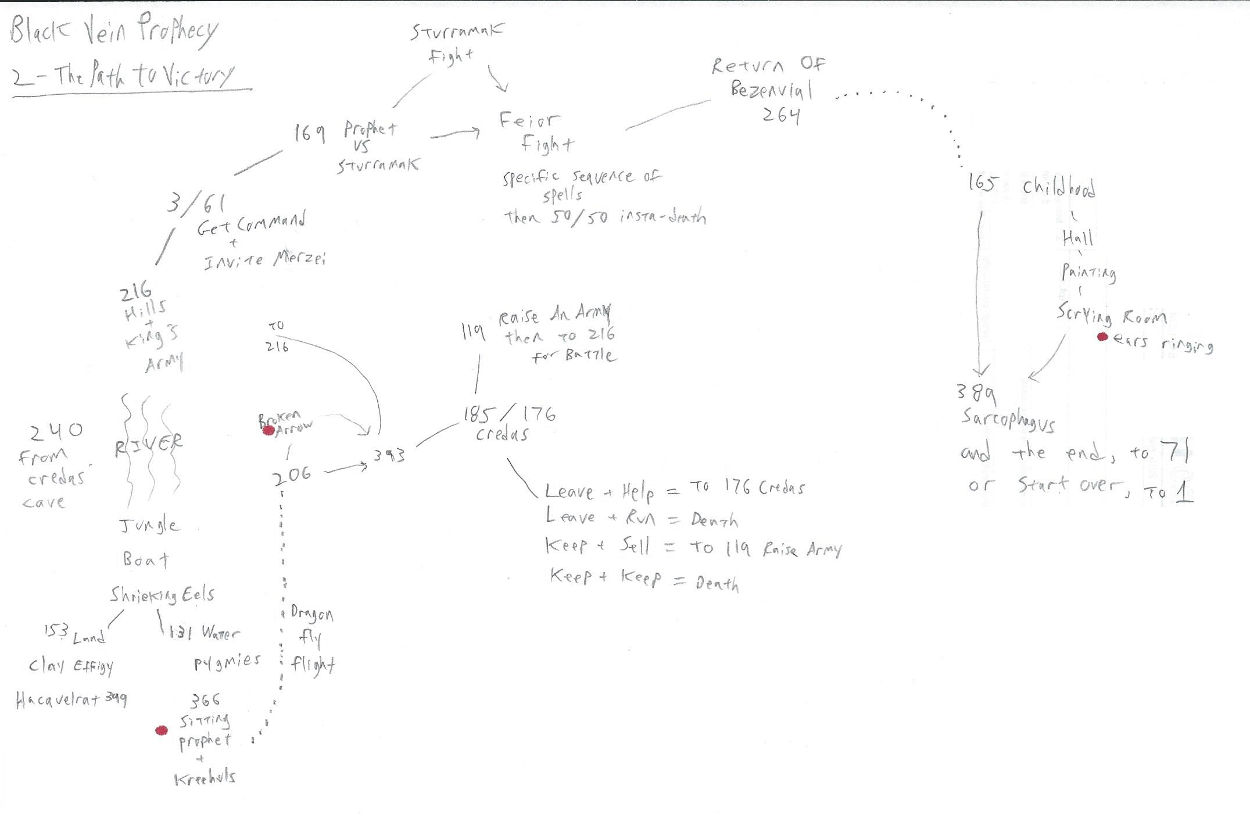 Black Vein Prophecy
2 - The Path to Victory
Sturramak
Fight
Return Of
Bezenvial
264
169 Prophet
vs
Sturramak
Feior
Fight
specific sequence of
spells
then 50/50 insta-death
165 childhood
Hall
Painting
Scrying Room
ears ringing
3/61
Get Command
+
Invite Merzei
216
Hills
+
King's
Army
to
216
119 Raise An Army
then to 216
for Battle
389
Sarcophagus
and the end, to 71
or start over, to 1
Broken
Arrow
185/176
credas
240
From
credas'
cave
RIVER
393
206
Leave + Help = To 176 Credas
Leave + Run = Death
Keep + Sell = To 119 Raise Army
Keep + Keep = Death
Jungle
Boat
Shrieking Eels
153 Land
131 Water
Clay Effigy
pygmies
Hacavelrat 399
Dragon
fly
flight
366
Sitting
prophet
+
Kreehuls